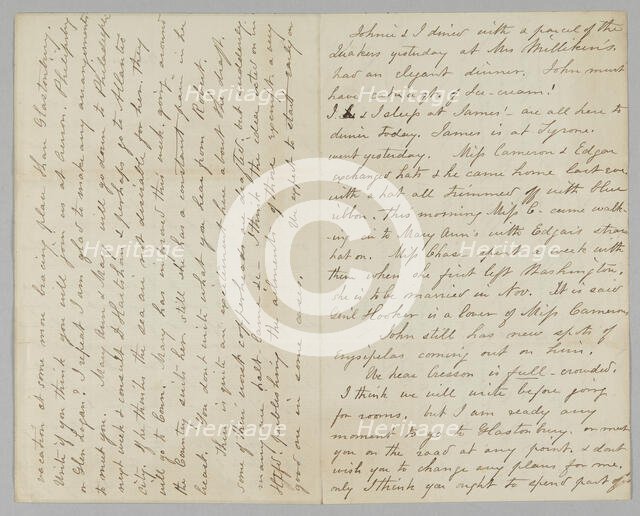 Johnie & I dined with a parcel of the
Quakers yesterday at Mrs Milliken's.
had an elegant dinner. John must
have eat a qt. of Ice-cream!
I & I sleep at James' - are all here to
dinner today. James is at Tyrone.
went yesterday. Miss Cameron & Edgar
exchanged hats & she came home last eve.
with a hat all trimmed off with blue
ribbon. This morning Miss C- came walk-
ing in to Mary Ann's with Edgar's straw
hat on. Miss Chase spent a week with
them when she first left Washington.
she is to be married in Nov. It is said
Genl Hooker is a lover of Miss Cameron
John still has new spots of
Erysipelas coming out on him.
We hear Cresson is full - crowded.
I think we will write before going
for rooms. but I am ready any
moment to go to Glastonbury. or meet
you on the road at any point. & don't
wish you to change any plans for me.
only I think you ought to spend part of
vacation at some more bracing place than Glastonbury.
Write if you think you will join us at Cresson. Philipsburg
or Glen Logan? I repeat I am glad to make any arrangements
to meet you. Mary Ann & Mary will go down to Philadelphia
next week & consult Dr Hutchins & perhaps go to Atlantic
city. if he thinks the sea air desirable for her. they
will go to Conn. Mary has improved this week. going around
the Country suits her. still she has a constant pain in her
breast. You don't write what you hear from Robert.
There is quite an excitement here about the draft.
some of the worst copperheads are drafted. but suddenly
many are halt lame &c - I think the idea acted on in
of publishing the ailments of those exempt a very
good one in some cases. We expect to start early on
iStock
Heritage Images